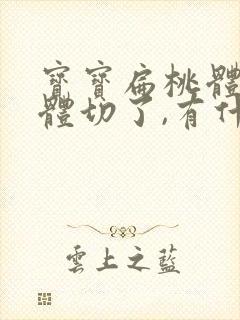 寶寶扁桃體
體切了,有什
雲上之藍